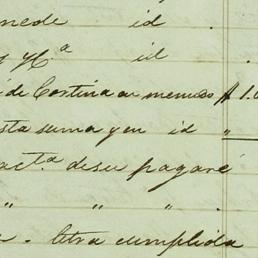 id
y Hª id
de Cortina en menudo $ 1.0
esta suma y en id "
actª de su pagaré
" " "
letra cumplida